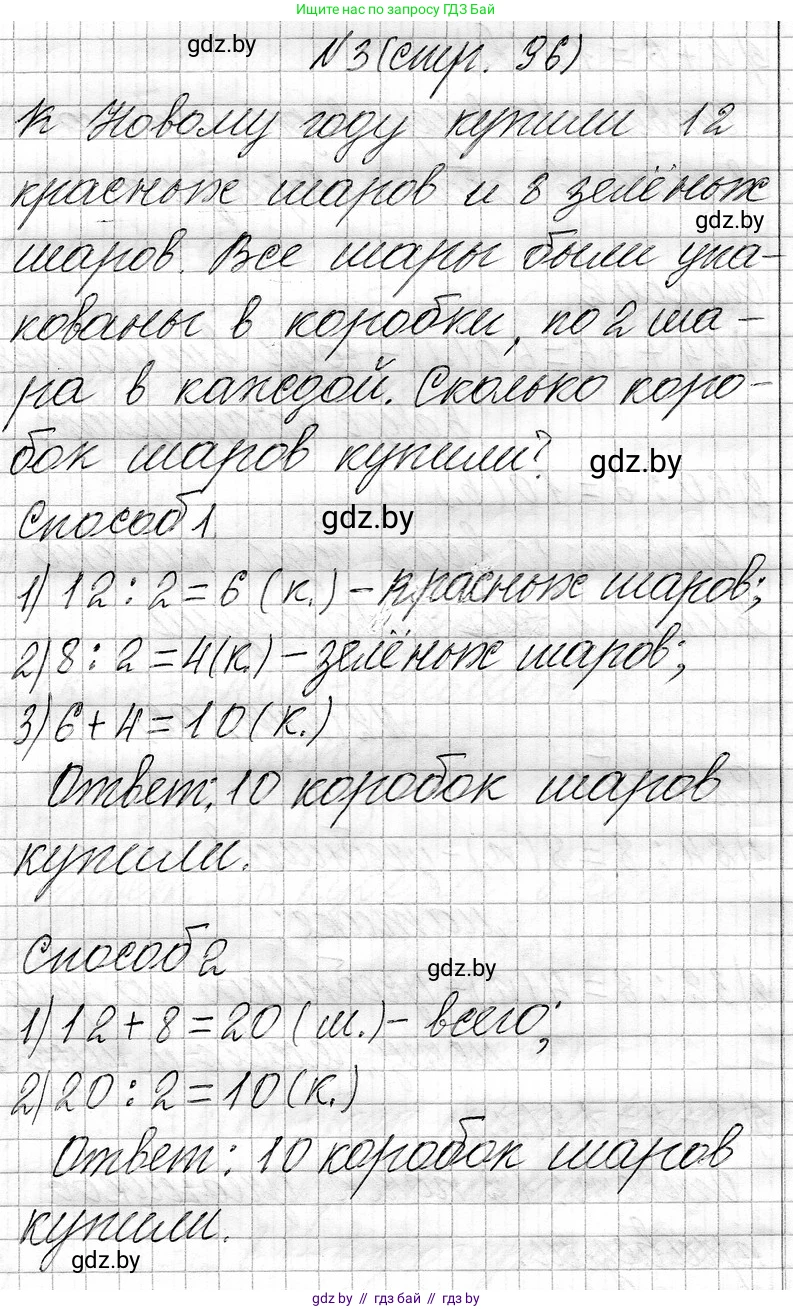 Ищите нас по запросу ГДЗ Бай
gdz.by
N3(стр. 96)
К Новому году купили 12
красных шаров и 8 зелёных
gdz.by
шаров. Все шары были упа-
кованы в коробки, по 2 ша-
ра в каждой. Сколько коро-
бок шаров купили?
gdz.by
Способ 1
gdz.by
1) 12 : 2 = 6 (к.) – красных шаров;
2) 8 : 2 = 4 (к.) – зелёных шаров;
3) 6 + 4 = 10 (к.)
Ответ: 10 коробок шаров
купили.
Способ 2
gdz.by
1) 12 + 8 = 20 (ш.) – всего;
2) 20 : 2 = 10 (к.)
Ответ: 10 коробок шаров
купили.
gdz.by
gdz.by // гдз бай // gdz.by